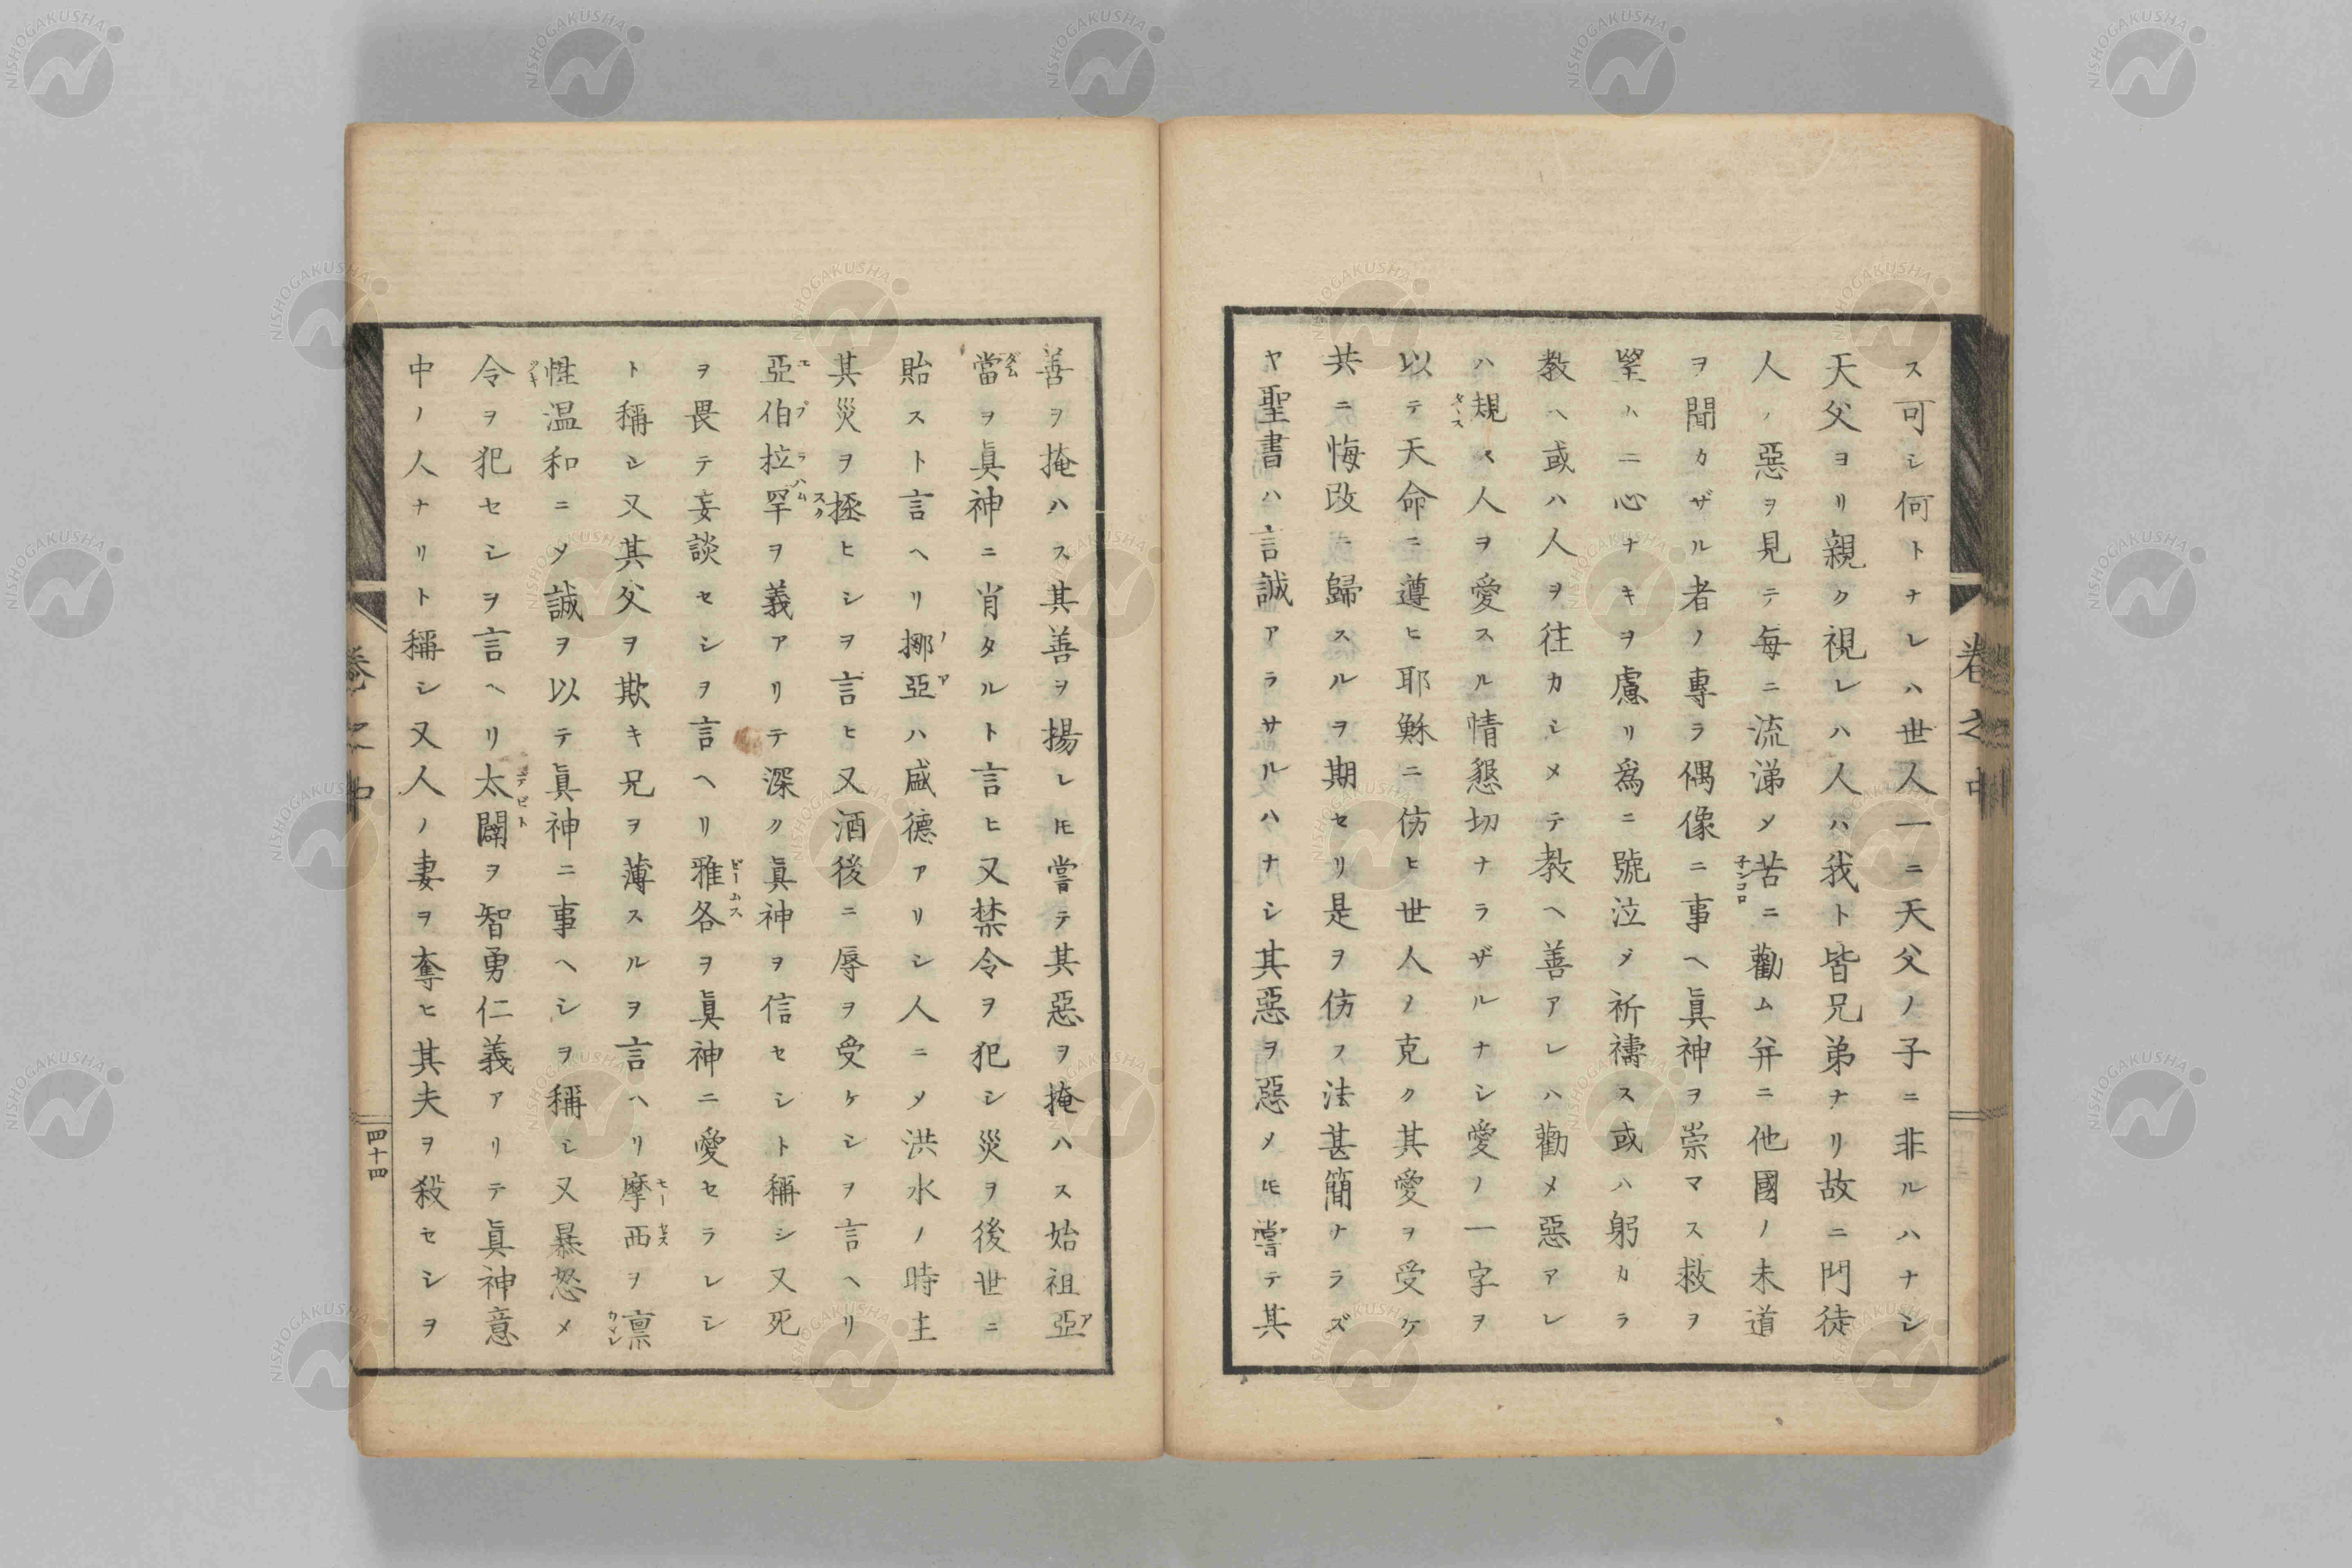 ス可シ何トナレハ世人一ニ天父ノ子ニ非ルハナシ
天父ヨリ親ク視レハ人ハ我ト皆兄弟ナリ故ニ門徒
人ノ惡ヲ見テ每ニ流涕メ苦ニ勸ム并ニ他國ノ未道
ヲ聞カザル者ノ專ラ偶像ニ事ヘ眞神ヲ崇マス救ヲ
望ハニ心ナキヲ慮リ爲ニ號泣メ祈禱ス或ハ躬カラ
教ヘ或ハ人ヲ往カシメテ教ヘ善アレハ勸メ惡アレ
ハ規メ人ヲ愛スル情懇切ナラザルナシ愛ノ一字ヲ
以テ天命ニ遵ヒ耶穌ニ仿ヒ世人ノ克ク其愛ヲ受ケ
共ニ悔改ニ歸スルヲ期セリ是ヲ仿フ法甚簡ナラズ
ヤ聖書ハ言誠アラサルハナシ其惡ヲ惡メ𪜈嘗テ其
卷之中
善ヲ掩ハス其善ヲ揚レ𪜈嘗テ其惡ヲ掩ハス始祖亞
當ヲ眞神ニ肖タルト言ヒ又禁令ヲ犯シ災ヲ後世ニ
貽スト言ヘリ挪亞ハ盛德アリシ人ニメ洪水ノ時主
其災ヲ拯ヒシヲ言ヒ又酒後ニ辱ヲ受ケシヲ言ヘリ
亞伯拉罕ヲ義アリテ深ク眞神ヲ信セシト稱シ又死
ヲ畏テ妄談セシヲ言ヘリ雅各ヲ眞神ニ愛セラレシ
ト稱シ又其父ヲ欺キ兄ヲ薄スルヲ言ハリ摩西ヲ凛
性温和ニメ誠ヲ以テ眞神ニ事ヘシヲ稱シ又暴怒メ
令ヲ犯セシヲ言ヘリ太闢ヲ智勇仁義アリテ眞神意
中ノ人ナリト稱シ又人ノ妻ヲ奪ヒ其夫ヲ殺セシヲ
卷之中
四十四
NISHOGAKUSHA